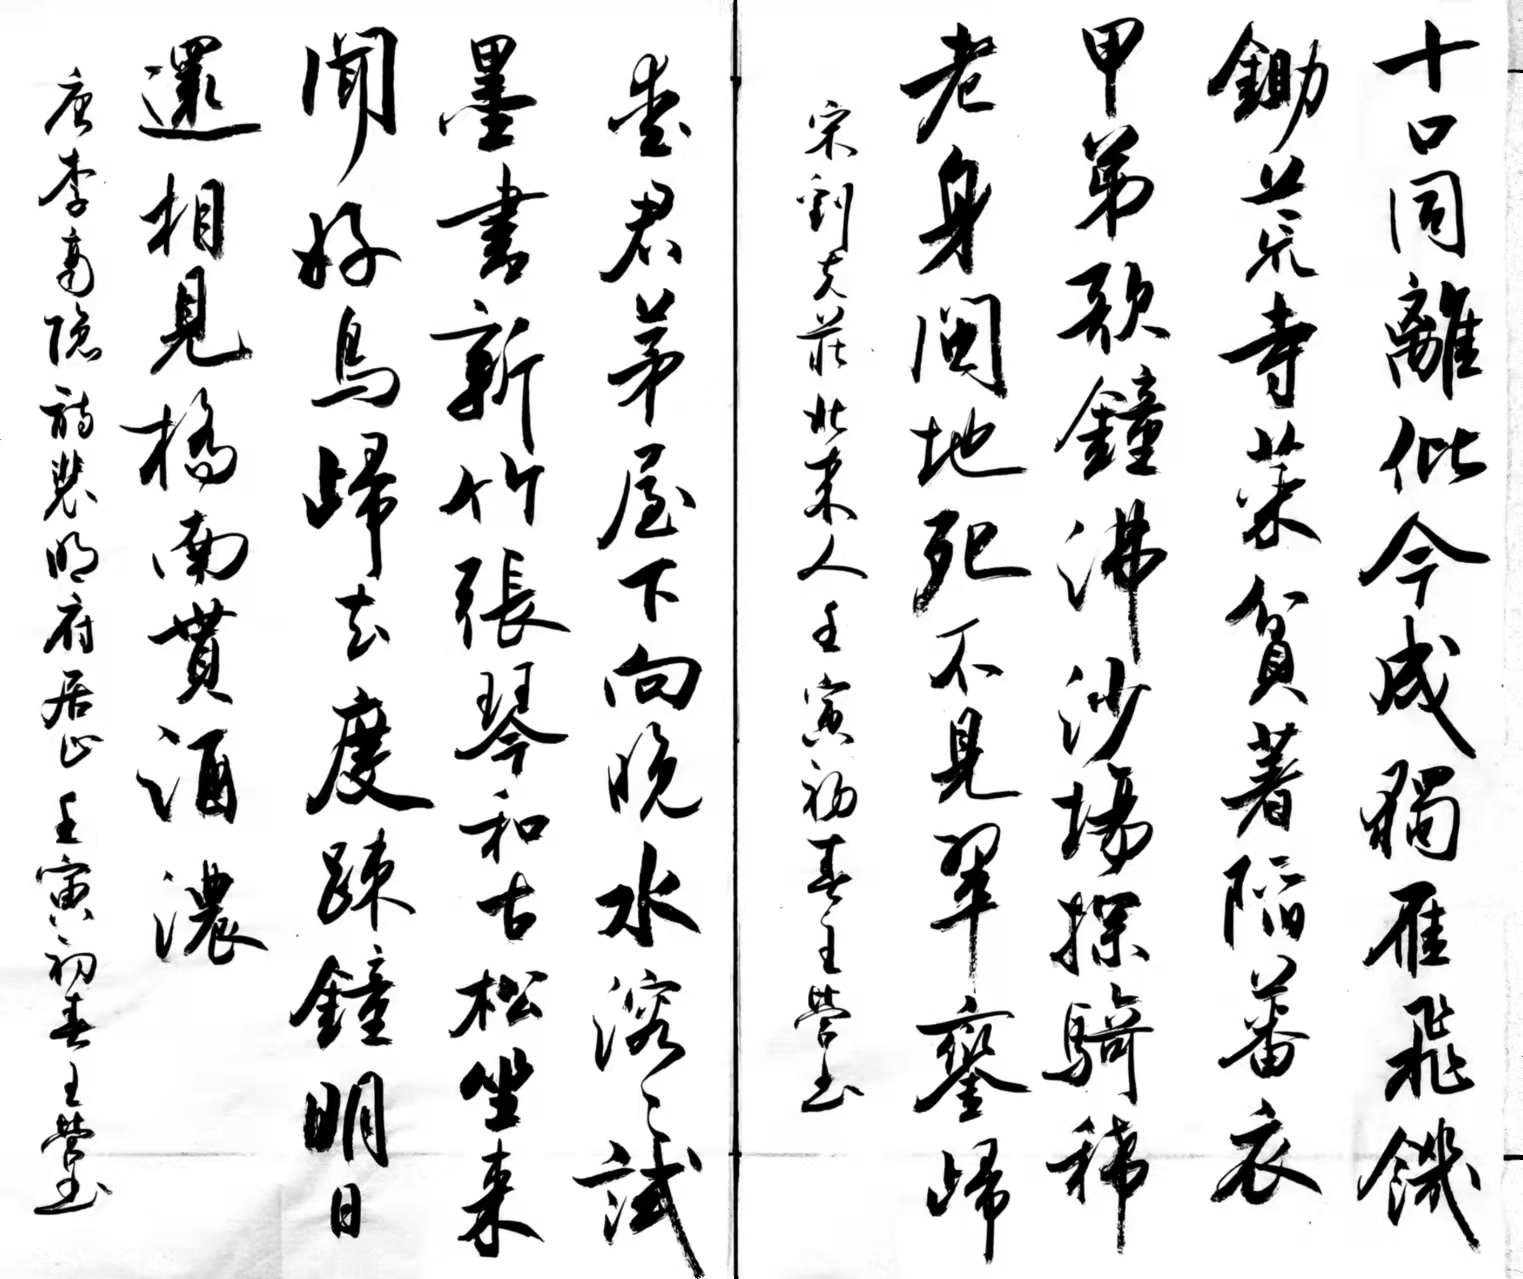 十口同離仳今成獨雁飛饑
鋤荒寺菜貧著陷蕃衣
甲第歌鐘沸沙場探騎稀
老身閩地死不見翠鑾歸
宋劉克莊北來人壬寅初春王營书
愛君茅屋下向晚水溶〻試
墨書新竹張琴和古松坐来
聞好鳥歸去度疎鐘明日
還相見橋南貰酒濃
唐李商隱訪裴明府居止壬寅初春王營书